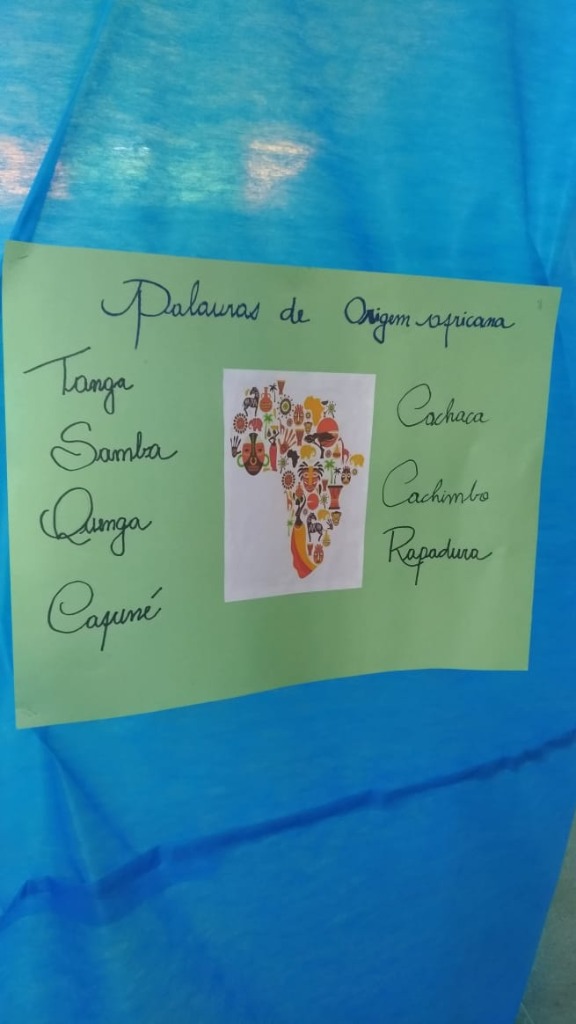 Palavras de Origem africana
Tanga
Samba
Quenga
Cafuné
Cachaca
Cachimbo
Rapadura